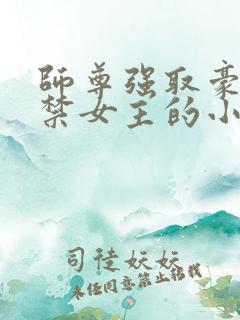 師尊强取豪
禁女主的小
司徒妖妖
未经同意禁止转载